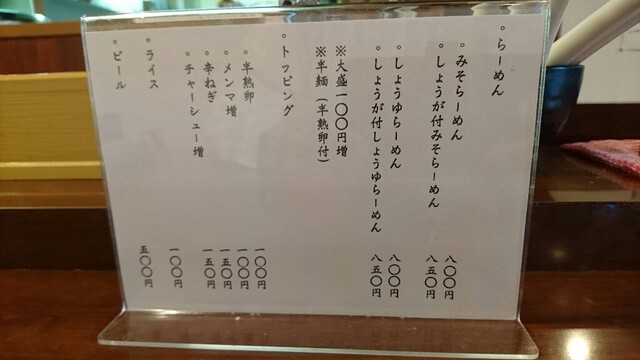 ◦らーめん
◦みそらーめん 八〇〇円
◦しょうが付みそらーめん 八五〇円
◦しょうゆらーめん 八〇〇円
◦しょうが付しょうゆらーめん 八五〇円
※大盛一〇〇円増
※半麺（半熟卵付）
◦トッピング
◦半熟卵 一〇〇円
◦メンマ増 一〇〇円
◦辛ねぎ 一五〇円
◦チャーシュー増 一五〇円
◦ライス 一〇〇円
◦ビール 五〇〇円